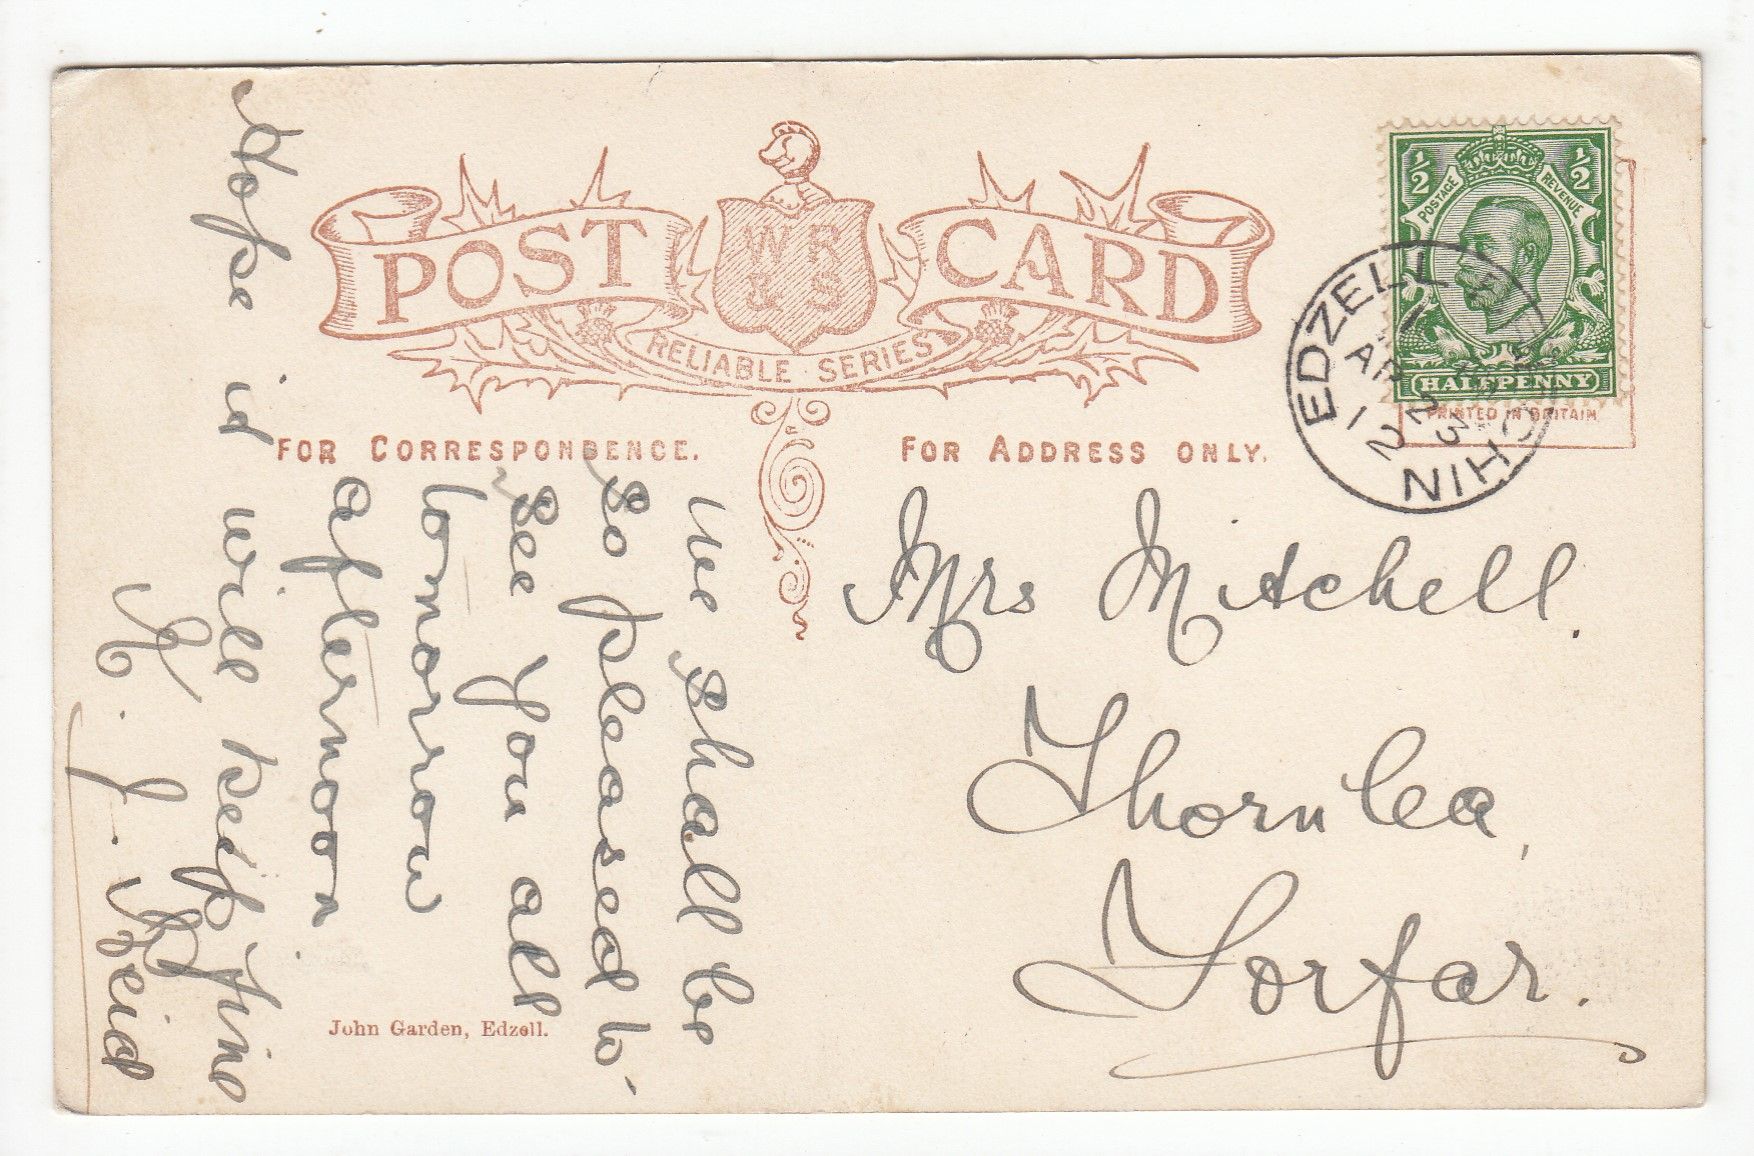 POST CARD
WR
& S
RELIABLE SERIES
FOR CORRESPONDENCE.
FOR ADDRESS ONLY.
½ ½
POSTAGE REVENUE
HALFPENNY
PRINTED IN BRITAIN
EDZELL
BRECHIN
AP 23
12
We shall be
so pleased to
see you all
tomorrow
afternoon
Hope it will keep fine
J. Reid
Mrs Mitchell.
Thornlea,
Forfar.
John Garden, Edzell.